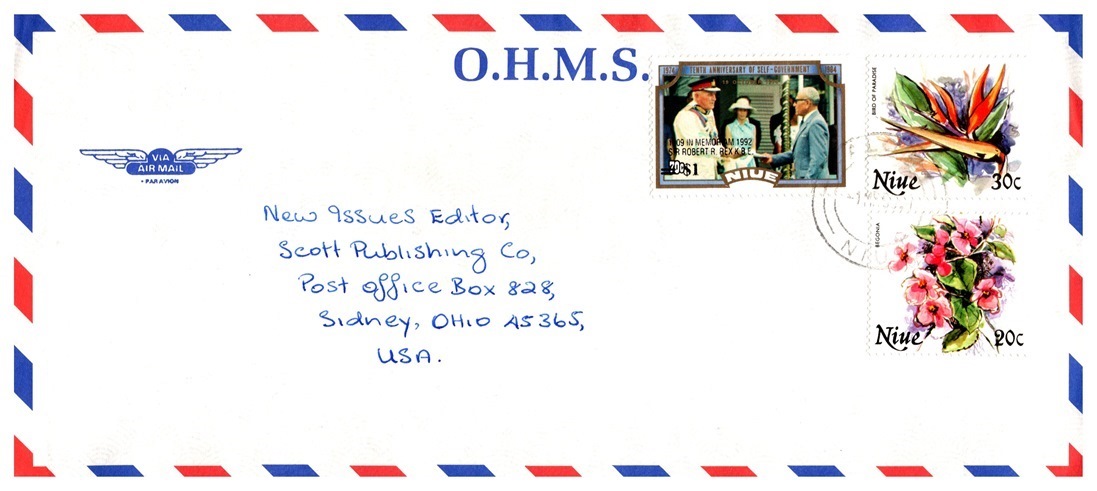 O.H.M.S.
VIA
AIR MAIL
• PAR AVION
1974 TENTH ANNIVERSARY OF SELF-GOVERNMENT 1984
1909 IN MEMORIAM 1992
SIR ROBERT R. REX K.B.E.
$1
NIUE
BIRD OF PARADISE
Niue 30c
BEGONIA
Niue 20c
NIU
New Issues Editor,
Scott Publishing Co,
Post Office Box 828,
Sidney, OHIO 45365,
USA.